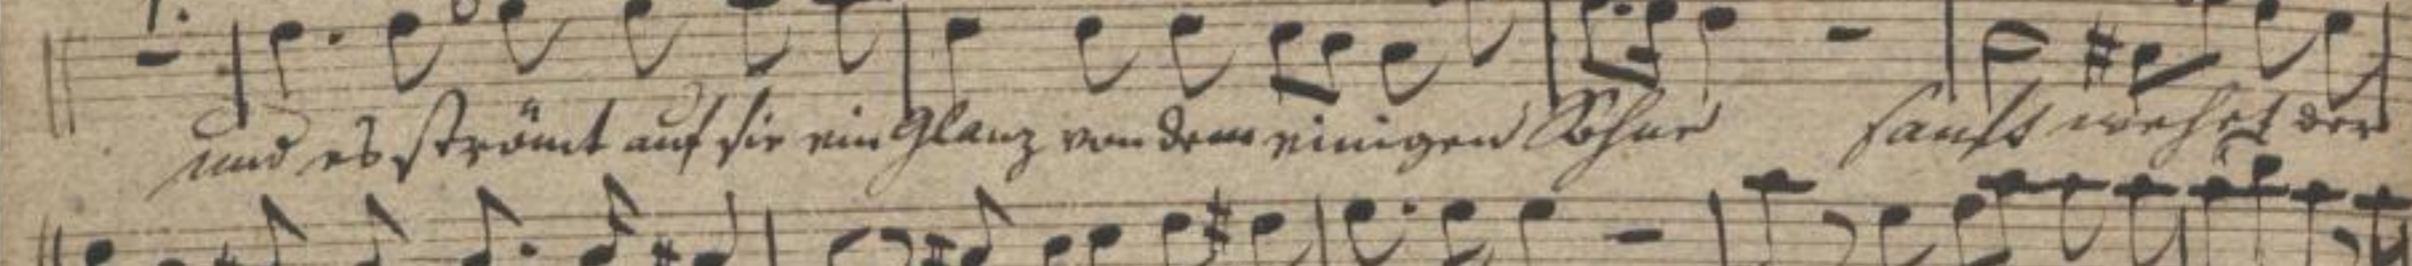 und es strömt auf sie ein Glanz von dem einigen Sohne sanft wehet der